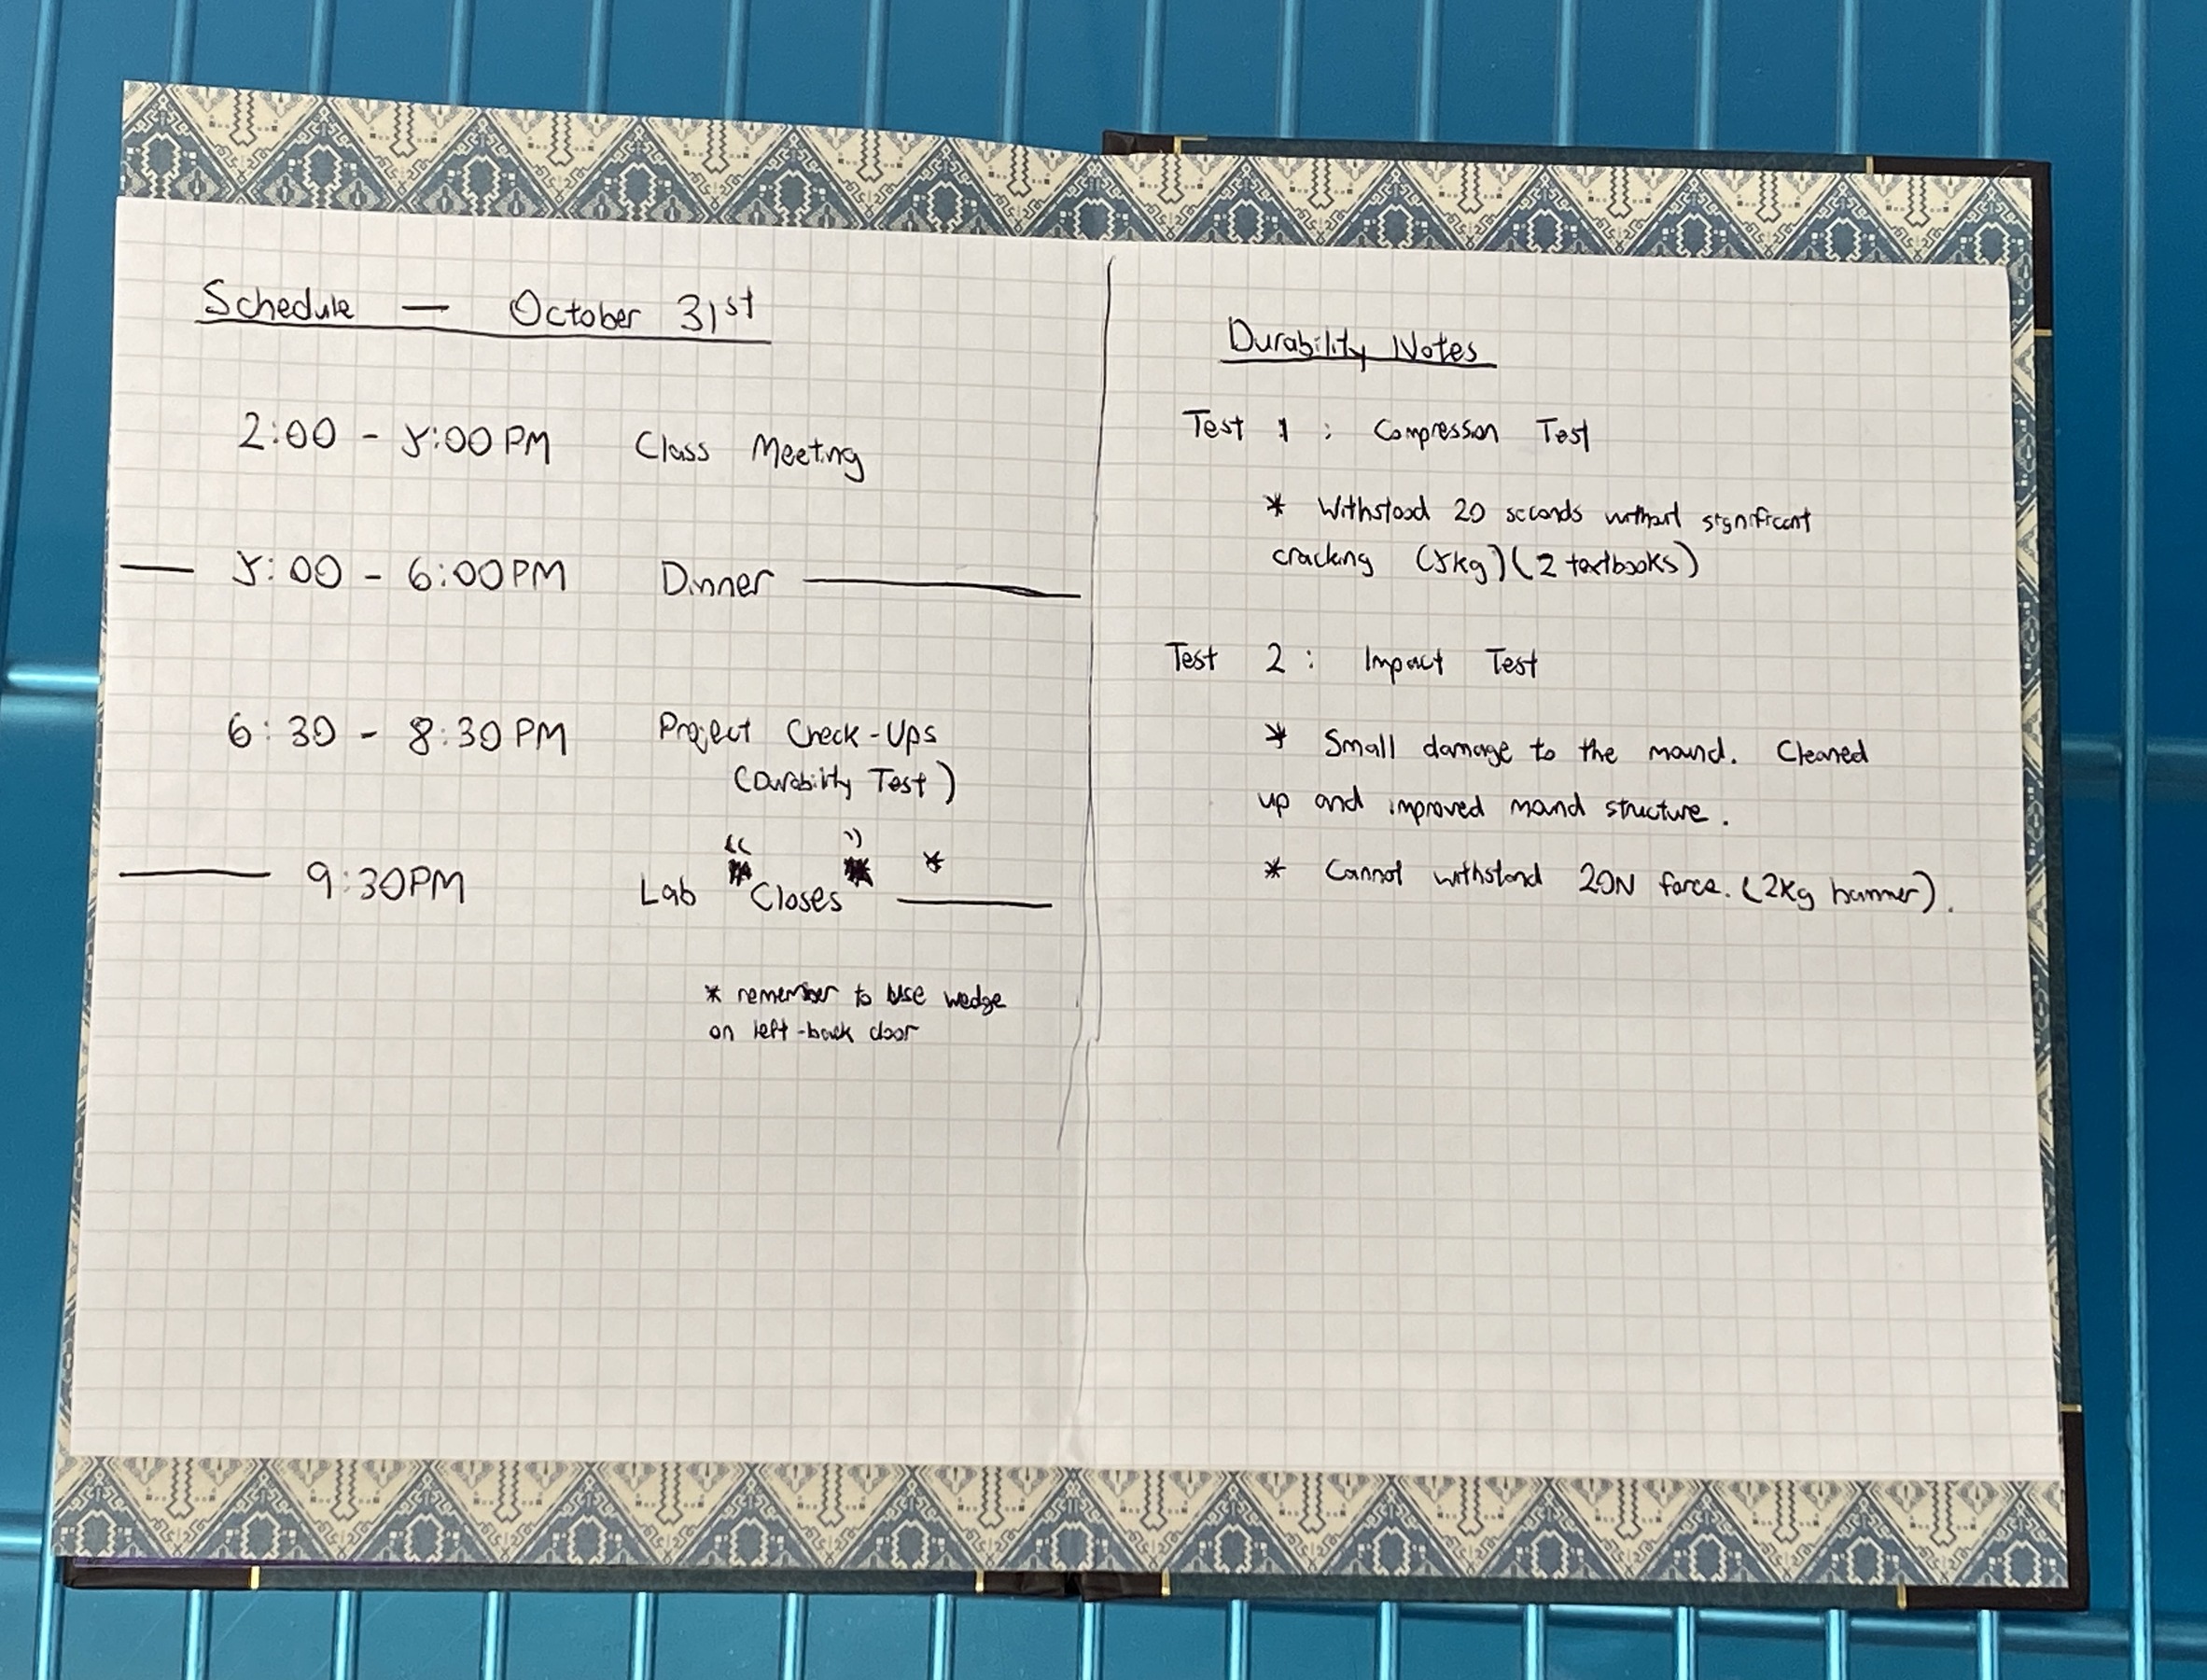 Schedule — October 31st
2:00 - 5:00 PM Class Meeting
5:00 - 6:00 PM Dinner
6:30 - 8:30 PM Project Check-Ups
(Durability Test)
9:30PM Lab "Closes" *
* remember to use wedge
on left-back door
Durability Notes
Test 1 : Compression Test
* Withstood 20 seconds without significant
cracking (5kg) (2 textbooks)
Test 2 : Impact Test
* Small damage to the mound. Cleaned
up and improved mound structure.
* Cannot withstand 20N force. (2kg hammer).